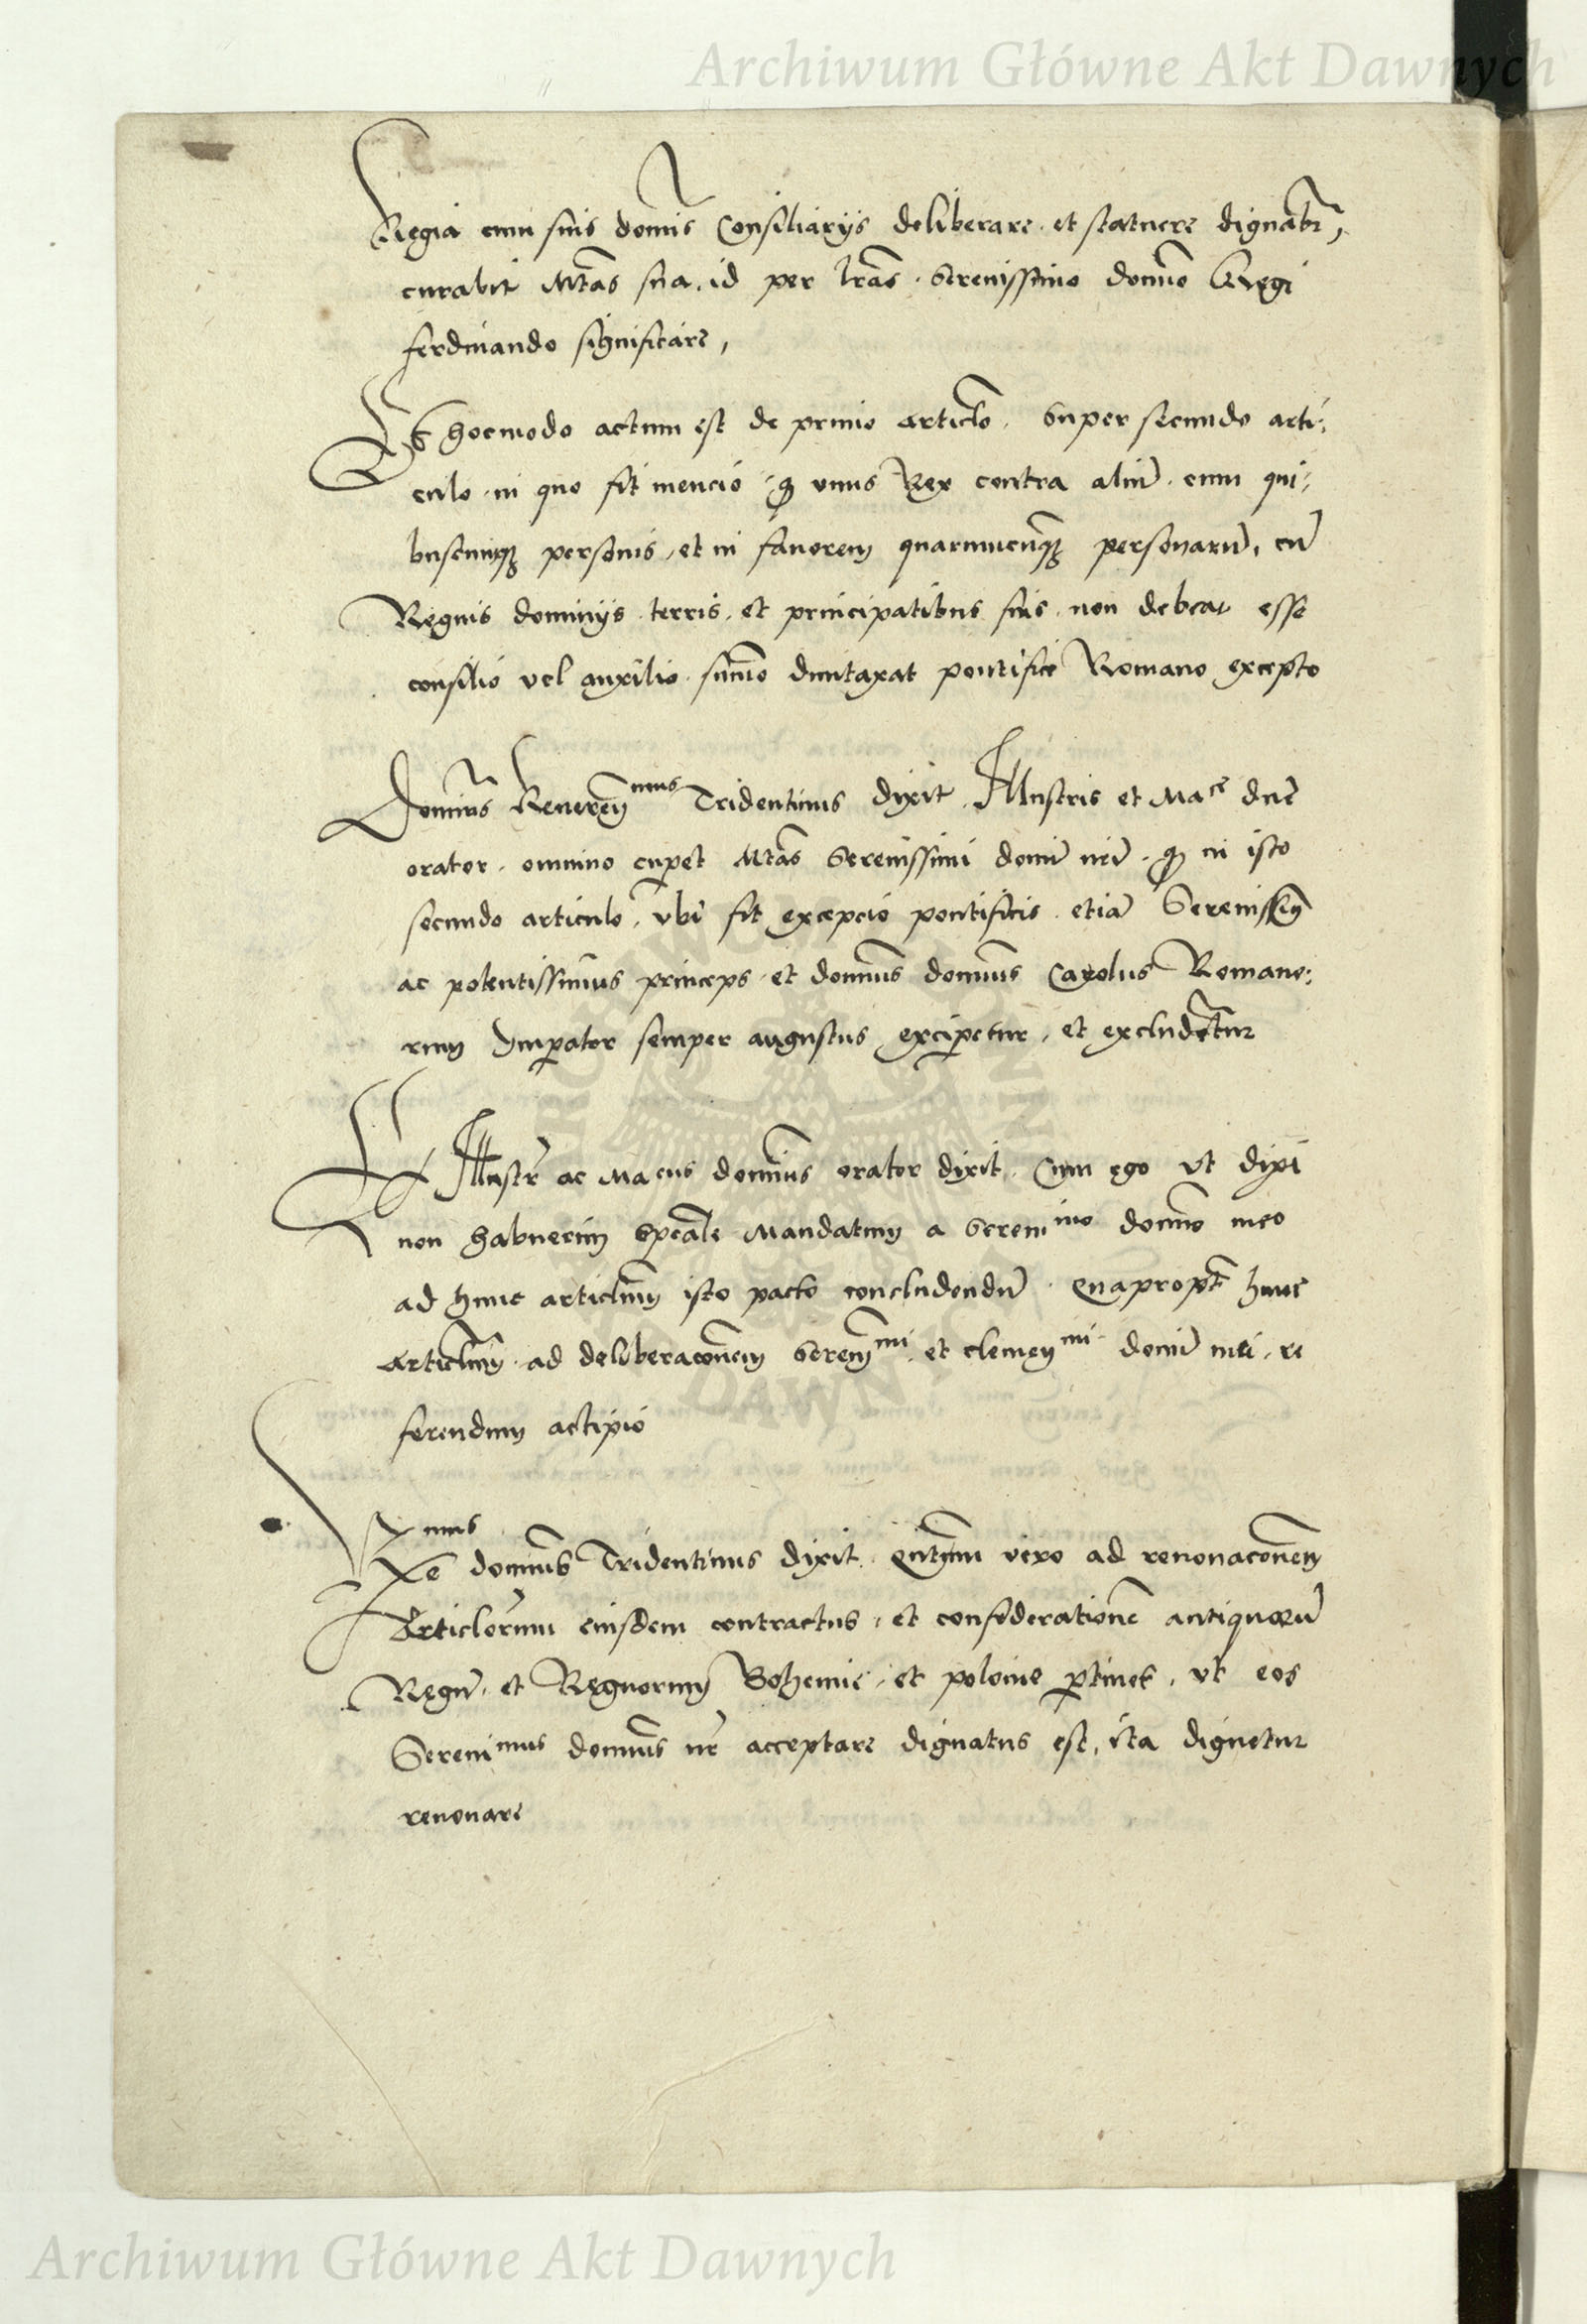 Archiwum Główne Akt Dawnych
Regia cum suis domis Consiliarijs deliberare et statuere dignabr,
curabit Mtas sua id per lras Serenissimo domo Regi
ferdinando significare,
Et hocmodo actum est de primo articlo. Super secundo arti:
culo in quo fit mencio q vnus Rex contra aliu cum qui:
buscumq personis, et in fauorem quarumcunq personaru, cu
Regnis dominijs terris et principatibus suis non debeat esse
consilio vel auxilio summo dumtaxat pontifice Romano excepto
Dominus Reueren mus Tridentinus dixit Illustris et Ma ce dne
orator omnino cupet Mtas Serenissimi domi nri q in isto
secundo articulo, vbi fit excepcio pontificis etia Serenissimus
ac potentissimus princeps et domnus domnus Carolus Romano:
rum Imperator semper augustus excipetur, et excludetur
Illustr ac Ma cus domnus orator dixit Cum ego vt dixi
non habuerim speale Mandatum a Sereni mo domno meo
ad hunc articlum isto pacto concludendu. Quapropt hunc
articlum ad deliberaconem Seren mi et clemen mi domi mei re
ferendum accipio
Re mus domnus Tridentinus dixit Quantum vero ad renouaconem
Articlorum eiusdem contractus, et confideratione antiquoru
Regu et Regnorum Bohemie et polonie ptinet, vt eos
Sereni mus domnus nr acceptare dignatus est, ita dignetur
renouare
ARCHIWUM
DAWNYCH
Archiwum Główne Akt Dawnych